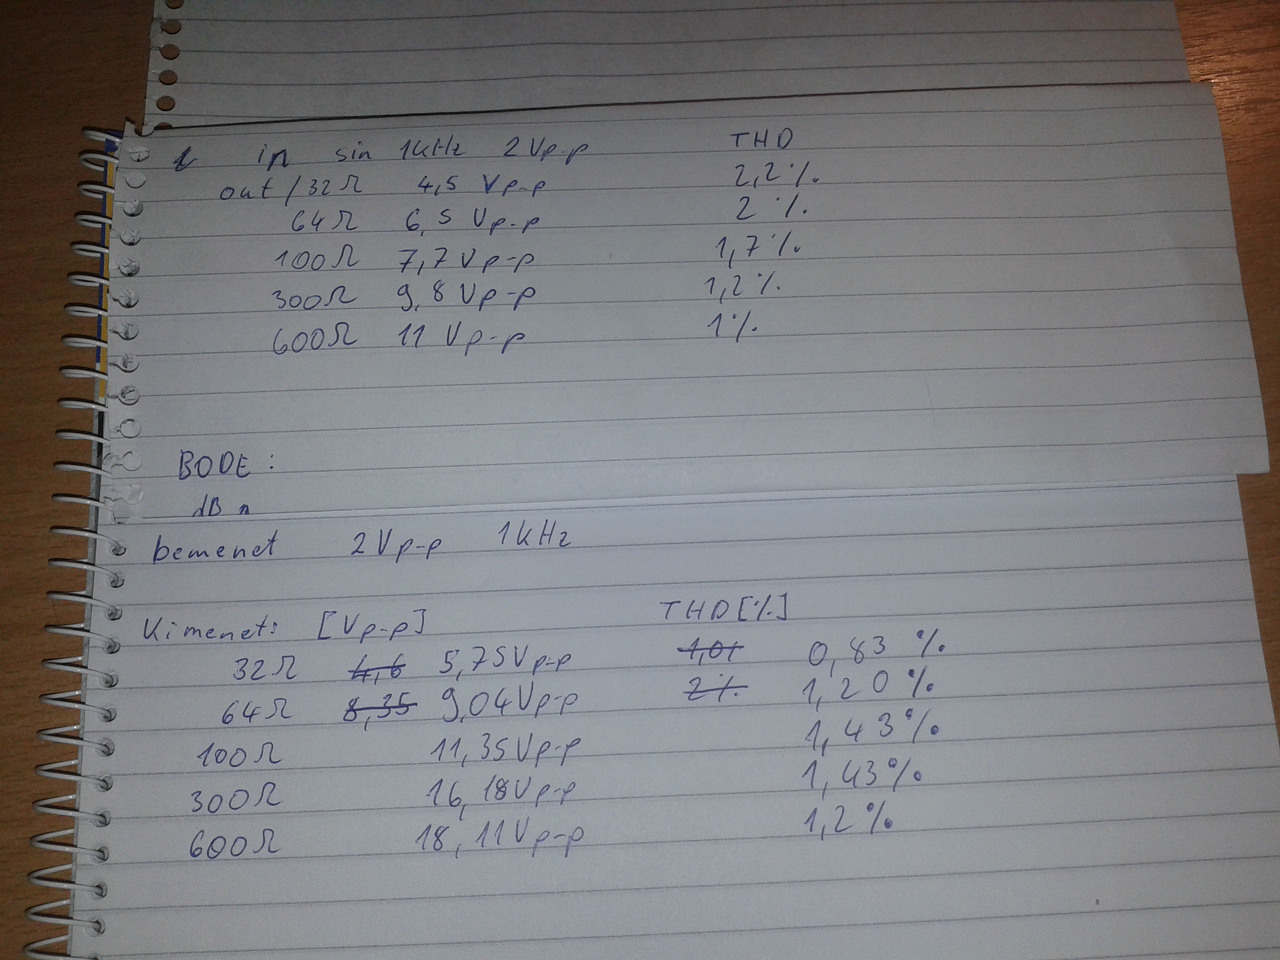 in sin 1kHz 2Vp-p THD
out/32Ω 4,5 Vp-p 2,2%
64Ω 6,5 Vp-p 2%
100Ω 7,7 Vp-p 1,7%
300Ω 9,8 Vp-p 1,2%
600Ω 11 Vp-p 1%
BODE:
dB
bemenet 2Vp-p 1kHz
Kimenet: [Vp-p] THD[%]
32Ω 4,6 5,75Vp-p 1,01 0,83%
64Ω 8,35 9,04Vp-p 2% 1,20%
100Ω 11,35Vp-p 1,43%
300Ω 16,18Vp-p 1,43%
600Ω 18,11Vp-p 1,2%